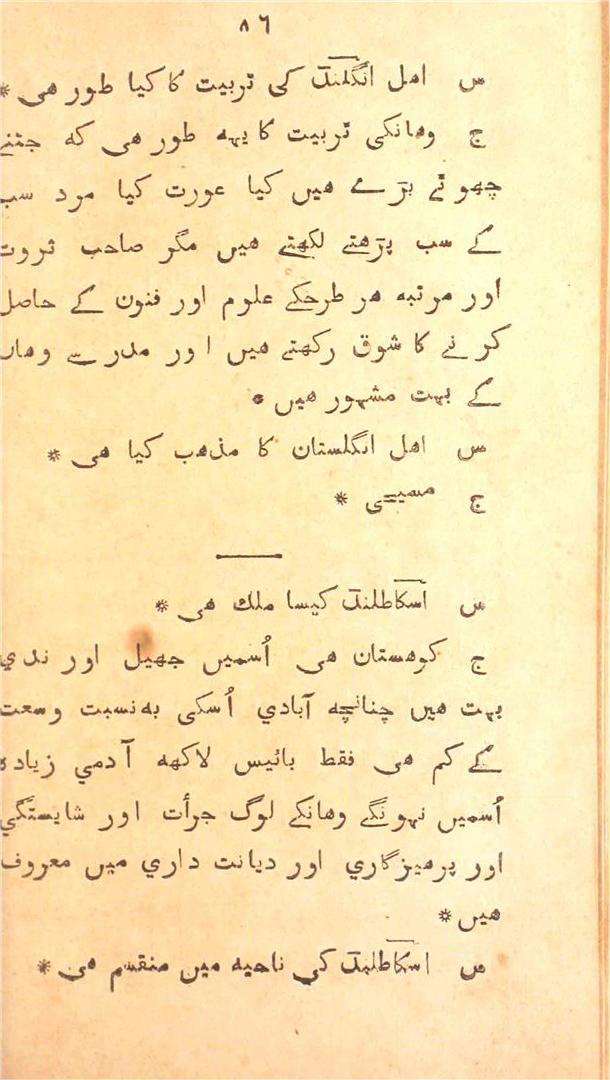 ۸٦
س اهل انگلند کی تربیت کا کیا طور هی *
ج وهانکی تربیت کا یهه طور هی که جتنے
چھوٹے بڑے هیں کیا عورت کیا مرد سب
کے سب پڑهتے لکھتے هیں مگر صاحب ثروت
اور مرتبه هر طرحکے علوم اور فنون کے حاصل
کرنے کا شوق رکھتے هیں اور مدرسے وهاں
کے بهت مشهور هیں *
س اهل انگلستان کا مذهب کیا هی *
ج مسیحی *
س اسکاطلند کیسا ملك هی *
ج کوهستان هی اُسمیں جھیل اور ندي
بهت هیں چنانچه آبادي اُسکی به‌نسبت وسعت
کے کم هی فقط بائیس لاکهه آدمي زیاده
اُسمیں نهونگے وهانکے لوگ جرأت اور شایستگي
اور پرهیزگاري اور دیانت داري میں معروف
هیں *
س اسکاطلند کی ناحیه میں منقسم هی *